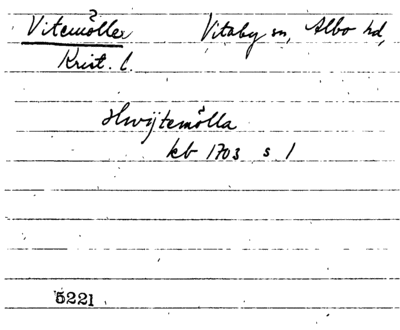 Vitemöller Vitaby sn, Albo hd,
Krist. l.
Hwÿtemölla
kb 1703 s 1
5221